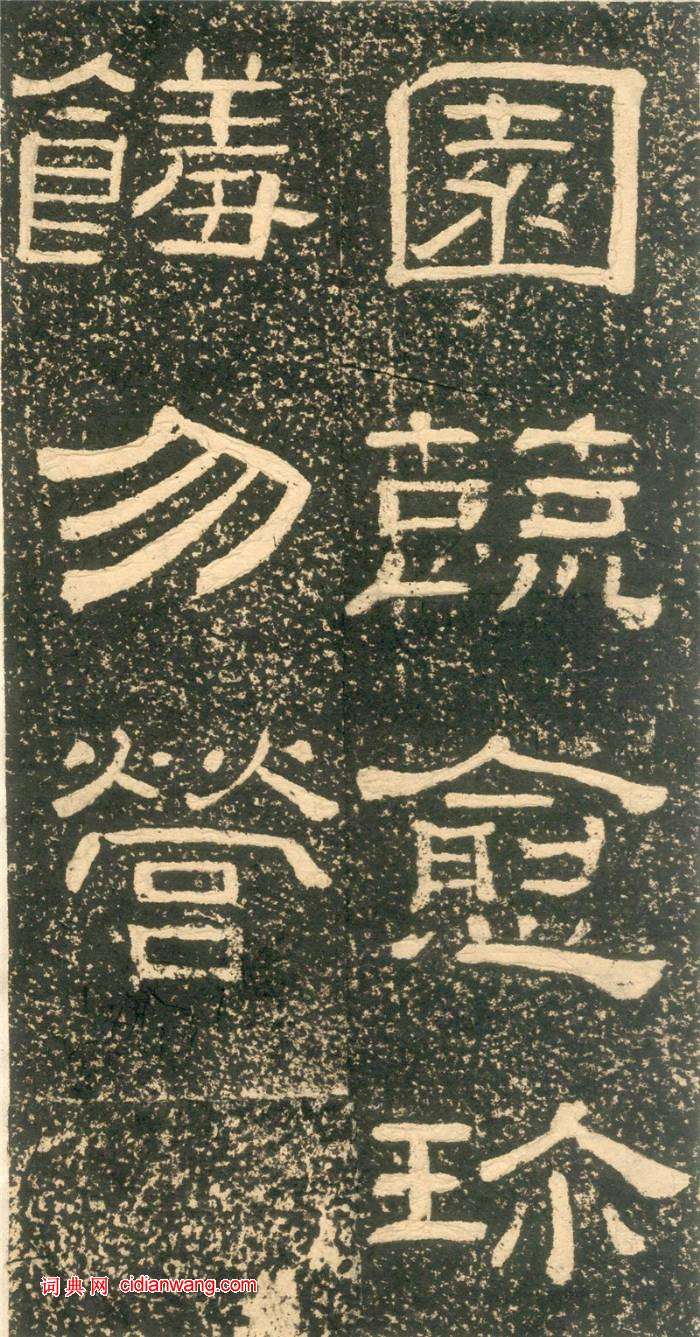 園蔬愈珎
饈勿營
词典网 cidianwang.com